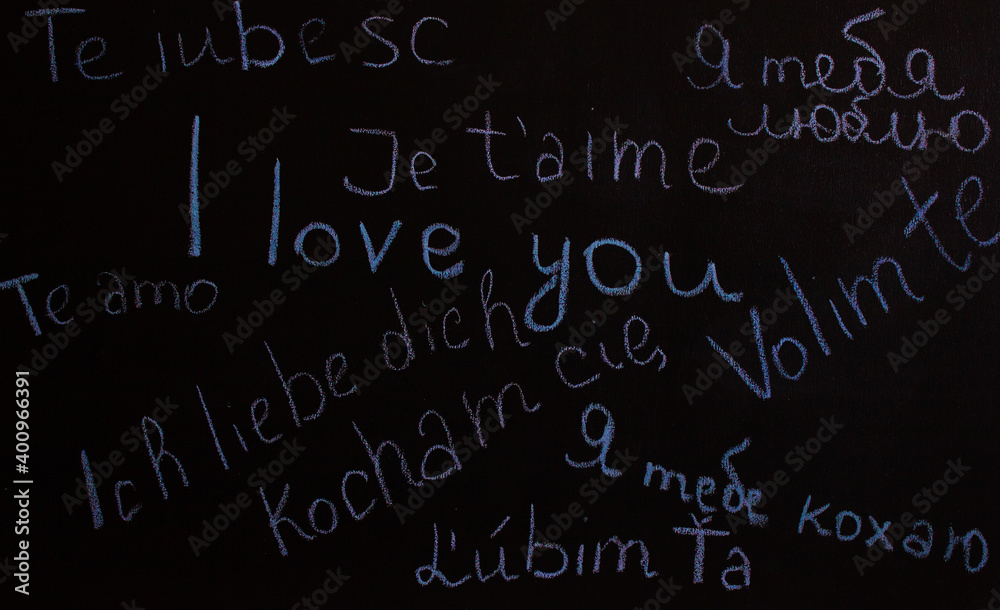 Te iubesc
Я тебя
люблю
Je t'aime
I love you
Volim te
Te amo
Ich liebe dich
Kocham cię
Я тебе кохаю
Ľúbim Ťa
Adobe Stock | #400966391